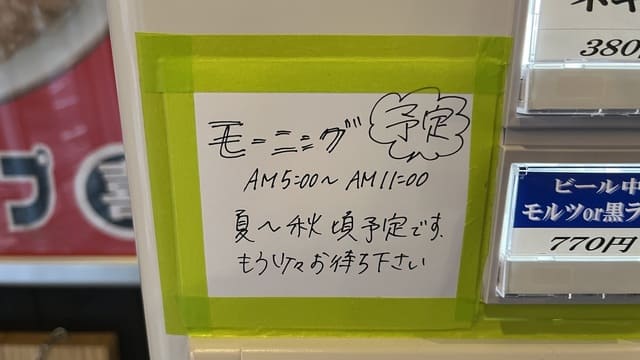 モーニング 予定
AM5:00～AM11:00
夏～秋頃予定です.
もう少々お待ち下さい
380
ビール中
モルツor黒ラ
770円
プ